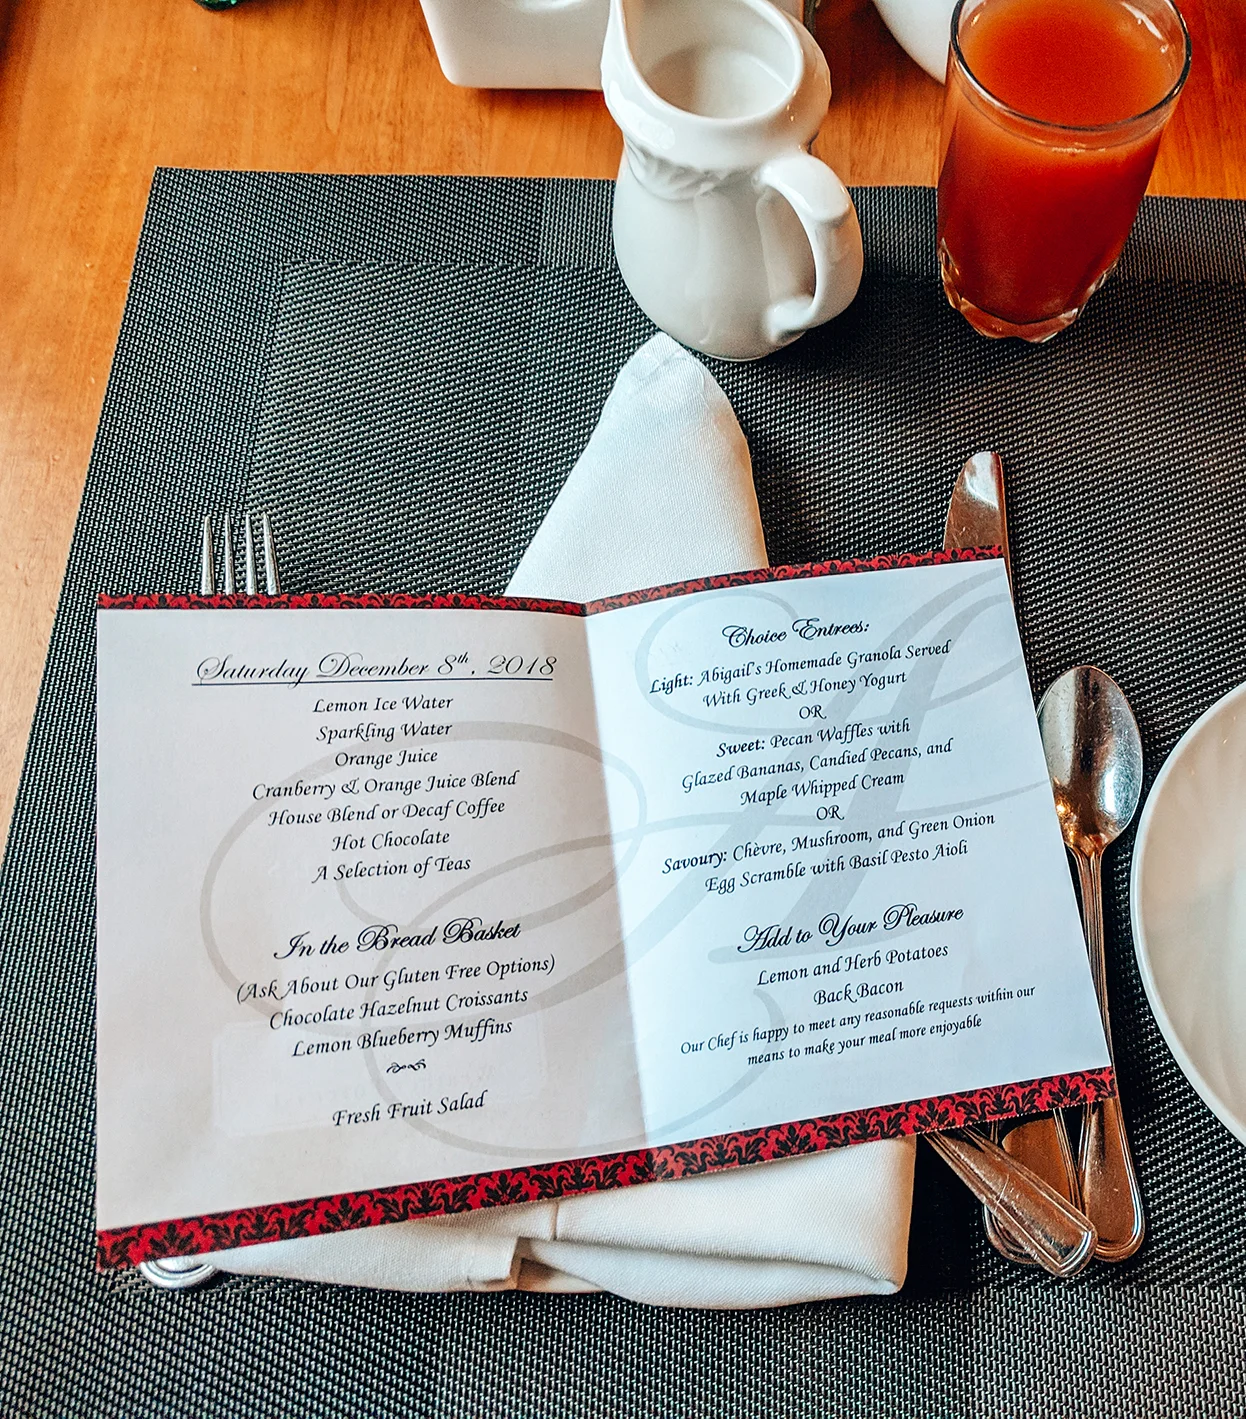 Saturday December 8th, 2018
Lemon Ice Water
Sparkling Water
Orange Juice
Cranberry & Orange Juice Blend
House Blend or Decaf Coffee
Hot Chocolate
A Selection of Teas
In the Bread Basket
(Ask About Our Gluten Free Options)
Chocolate Hazelnut Croissants
Lemon Blueberry Muffins
Fresh Fruit Salad
Choice Entrees:
Light: Abigail's Homemade Granola Served
With Greek & Honey Yogurt
OR
Sweet: Pecan Waffles with
Glazed Bananas, Candied Pecans, and
Maple Whipped Cream
OR
Savoury: Chèvre, Mushroom, and Green Onion
Egg Scramble with Basil Pesto Aioli
Add to Your Pleasure
Lemon and Herb Potatoes
Back Bacon
Our Chef is happy to meet any reasonable requests within our
means to make your meal more enjoyable